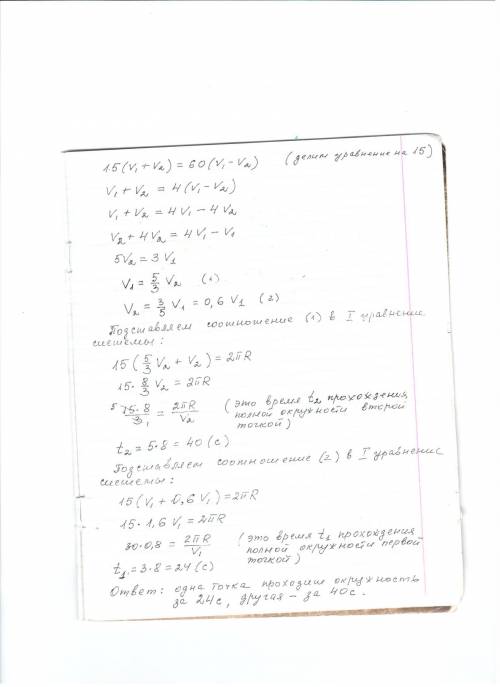 15(V₁+V₂) = 60(V₁-V₂) (делим уравнение на 15)
V₁ + V₂ = 4(V₁-V₂)
V₁ + V₂ = 4V₁ - 4V₂
V₂ + 4V₂ = 4V₁ - V₁
5V₂ = 3V₁
V₁ = 5/3 V₂ (1)
V₂ = 3/5 V₁ = 0,6 V₁ (2)
Подставляем соотношение (1) в I уравнение
системы:
15(5/3 V₂ + V₂) = 2πR
15·8/3 V₂ = 2πR
5 15·8/3 1 = 2πR/V₂ (это время t₂ прохождения
полной окружности второй
точкой)
t₂ = 5·8 = 40(с)
Подставляем соотношение (2) в I уравнение
системы:
15(V₁ + 0,6 V₁) = 2πR
15·1,6 V₁ = 2πR
30·0,8 = 2πR/V₁ (это время t₁ прохождения
полной окружности первой
точкой)
t₁ = 3·8 = 24(с)
Ответ: одна точка проходит окружность
за 24с, другая – за 40с.